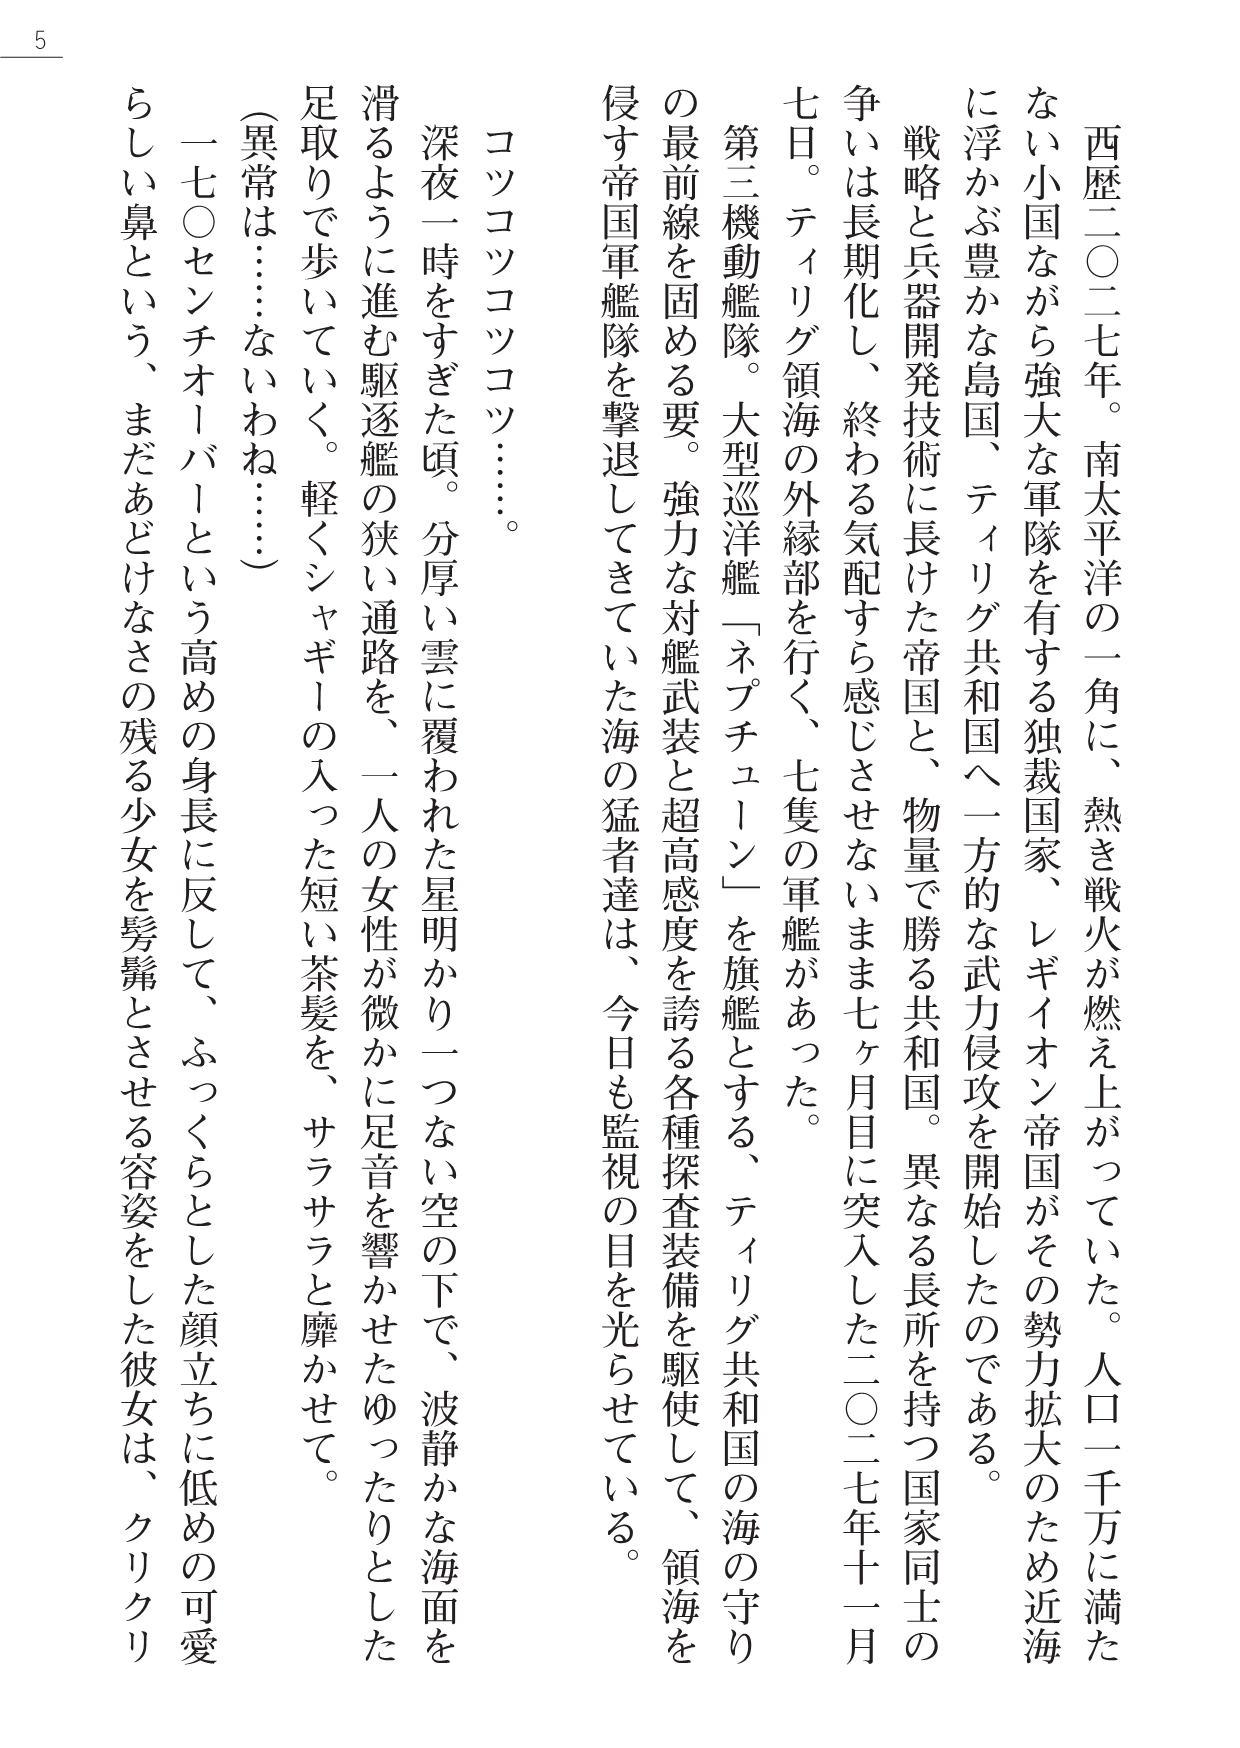 5
西歴二〇二七年。南太平洋の一角に、熱き戦火が燃え上がっていた。人口一千万に満た
ない小国ながら強大な軍隊を有する独裁国家、レギイオン帝国がその勢力拡大のため近海
に浮かぶ豊かな島国、ティリグ共和国へ一方的な武力侵攻を開始したのである。
戦略と兵器開発技術に長けた帝国と、物量で勝る共和国。異なる長所を持つ国家同士の
争いは長期化し、終わる気配すら感じさせないまま七ヶ月目に突入した二〇二七年十一月
七日。ティリグ領海の外縁部を行く、七隻の軍艦があった。
第三機動艦隊。大型巡洋艦「ネプチューン」を旗艦とする、ティリグ共和国の海の守り
の最前線を固める要。強力な対艦武装と超高感度を誇る各種探査装備を駆使して、領海を
侵す帝国軍艦隊を撃退してきていた海の猛者達は、今日も監視の目を光らせている。
コツコツコツコツ……。
深夜一時をすぎた頃。分厚い雲に覆われた星明かり一つない空の下で、波静かな海面を
滑るように進む駆逐艦の狭い通路を、一人の女性が微かに足音を響かせたゆったりとした
足取りで歩いていく。軽くシャギーの入った短い茶髪を、サラサラと靡かせて。
（異常は……ないわね……）
一七〇センチオーバーという高めの身長に反して、ふっくらとした顔立ちに低めの可愛
らしい鼻という、まだあどけなさの残る少女を髣髴とさせる容姿をした彼女は、クリクリ